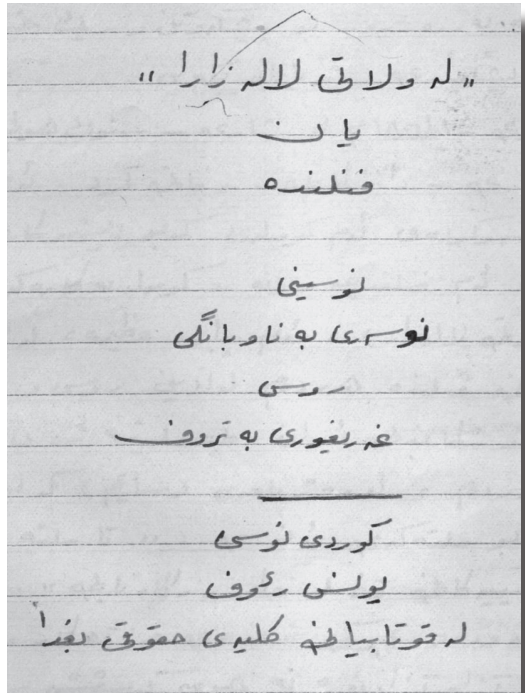 "له ولاتی لاله زارا"
یان
فنلنده
نوسینی
نوسه‌ری به ناوبانگی
روسی
غه ریغوری به تروف
کوردی نوسی
یونس رئوف
له قوتابیانی کلیه‌ی حقوقی بغدا